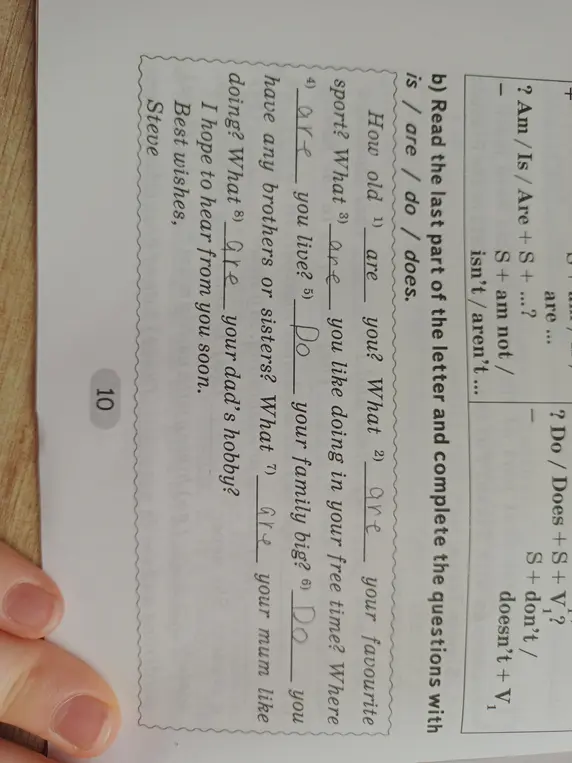 +
are ...
? Am / Is / Are + S + ...?
– S + am not /
isn't / aren't ...
? Do / Does + S + V₁?
– S + don't /
doesn't + V₁
b) Read the last part of the letter and complete the questions with
is / are / do / does.
How old ¹⁾ are you? What ²⁾ are your favourite
sport? What ³⁾ are you like doing in your free time? Where
⁴⁾ are you live? ⁵⁾ Do your family big? ⁶⁾ Do you
have any brothers or sisters? What ⁷⁾ are your mum like
doing? What ⁸⁾ are your dad's hobby?
I hope to hear from you soon.
Best wishes,
Steve
10